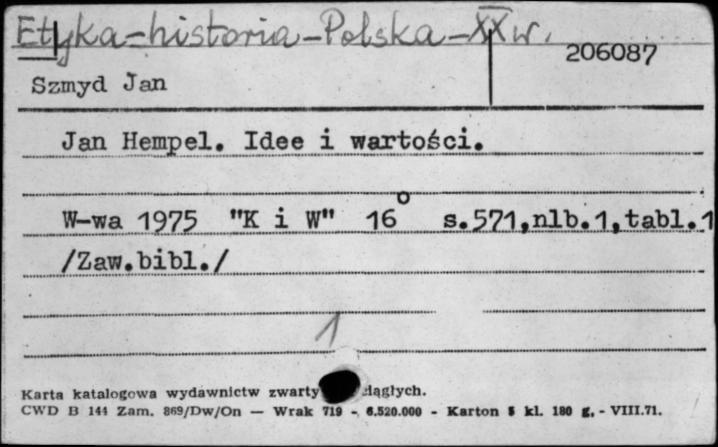 Etyka-historia-Polska-XX w.
206087
Szmyd Jan
Jan Hempel. Idee i wartości.
W-wa 1975 "K i W" 16° s.571,nlb.1,tabl.1
/Zaw.bibl./
1
Karta katalogowa wydawnictw zwarty iągłych.
CWD B 144 Zam. 869/Dw/On — Wrak 719 - 6.520.000 - Karton 5 kl. 180 g. - VIII.71.